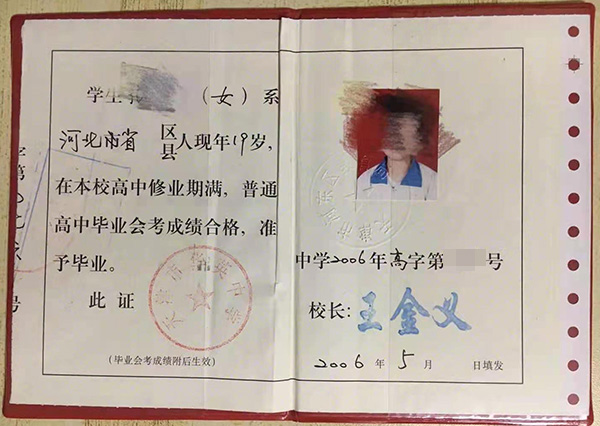 学生
(女)系
河北市省 区县人现年19岁,
在本校高中修业期满,普通
高中毕业会考成绩合格,准
予毕业。
此证
(毕业会考成绩附后生效)
中学2006年高字第 号
校长:王金义
2006年5月 日填发
字第
号